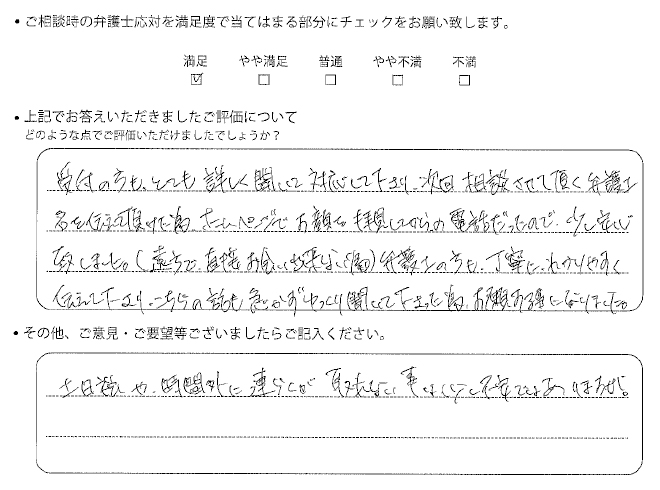 ・ご相談時の弁護士応対を満足度で当てはまる部分にチェックをお願い致します。
満足 やや満足 普通 やや不満 不満
☑ ☐ ☐ ☐ ☐
・上記でお答えいただきましたご評価について
どのような点でご評価いただけましたでしょうか？
受付の方も、とても詳しく聞いて対応して下さり、次回相談させて頂く弁護士
名を伝えて頂けた為、ホームページでお顔を拝見してからの電話だったので、少し安心
致しました。(遠方で直接お会い出来ない為)弁護士の方も、丁寧に、わかりやすく
伝えて下さり、こちらの話も急かさずゆっくり聞いて下さった為、お願いする事になりました。
・その他、ご意見・ご要望等ございましたらご記入ください。
土日祝や、時間外に連らくが取れない事は少し不安ではありますが。